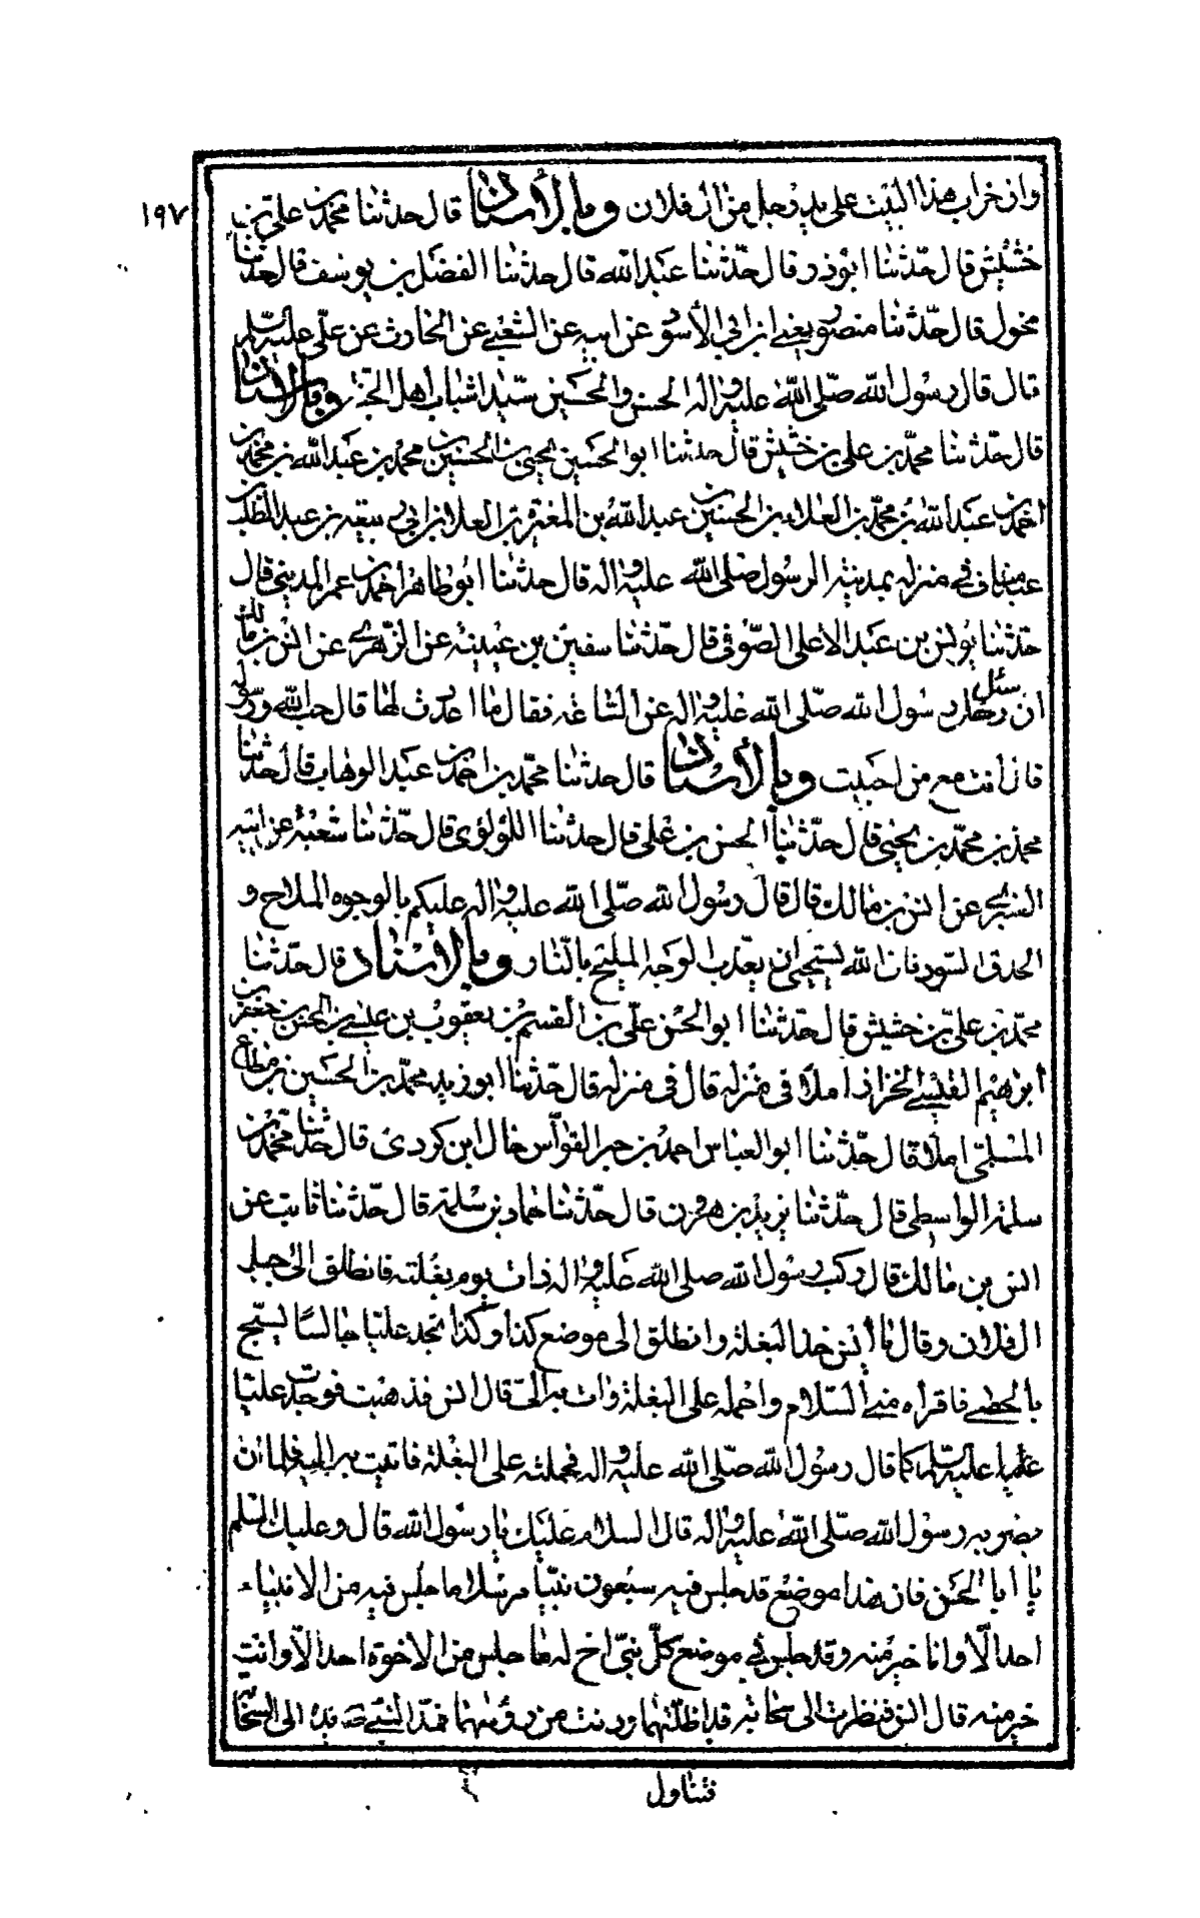 وان خراب هذا البيت على يد رجل من ال فلان وبالاسناد قال حدثنا محمد بن علي بن
١٩٧
خشيش قال حدثنا ابوذر قال حدثنا عبدالله قال حدثنا الفضل بن يوسف قال حدثنا
مخول قال حدثنا منصور يعني ابن ابي الأسود عن ابيه عن الشعبي عن الحارث عن علي عليه السلم
قال قال رسول الله صلى الله عليه واله الحسن والحسين سيدا شباب اهل الجنة وبالاسناد
قال حدثنا محمد بن علي بن خشيش قال حدثنا ابوالحسين يحيى بن الحسين بن محمد بن عبدالله بن محمد بن
احمد بن عبدالله بن محمد بن العلاء بن الحسين بن عبدالله بن المغيرة بن العلا بن ابي ربيعة بن عبد المطلب
عبد مناف في منزله بمدينة الرسول صلى الله عليه واله قال حدثنا ابوطاهر احمد بن عمر المديني قال
حدثنا يونس بن عبد الاعلى الصوفي قال حدثنا سفين بن عيينة عن الزهري عن انس بن مالك
ان رجلا سئل رسول الله صلى الله عليه واله عن الساعة فقال ما اعددت لها قال حب الله ورسوله
قال انت مع من احببت وبالأسناد قال حدثنا محمد بن احمد بن عبد الوهاب قال حدثنا
محمد بن محمد بن يحيى قال حدثنا الحسن بن علي قال حدثنا اللؤلؤي قال حدثنا شعبة عن ابيه
عن انس بن مالك قال قال رسول الله صلى الله عليه واله عليكم بالوجوه الملاح و
الحدق السود فان الله يستحيي ان يعذب الوجه المليح بالنار وبالاسناد قال حدثنا
محمد بن علي بن خشيش قال حدثنا ابوالحسن علي بن القسم بن يعقوب بن عيسى بن الحسن بن جعفر بن
ابرهيم القيسي الخزاز املاء في منزله قال في منزله قال حدثنا ابوزيد محمد بن الحسين بن مطاع
المسلمي املاء قال حدثنا ابوالعباس احمد بن حبر القواس خال ابن كردي قال حدثنا محمد بن
سلمة الواسطي قال حدثنا يزيد بن هرون قال حدثنا حماد بن سلمة قال حدثنا ثابت عن
انس بن مالك قال ركب رسول الله صلى الله عليه واله ذات يوم بغلته فانطلق الى جبل
ال فلان وقال يا أنس خذ البغلة وانطلق الى موضع كذا وكذا تجد عليا جالسا يسبح
بالحصى فاقرأه مني السلام واحمله على البغلة وات به الي قال انس فذهبت فوجدت عليا
عليه السلم كما قال رسول الله صلى الله عليه واله فحملته على البغلة فاتيت به اليه فلما ان
بصر به رسول الله صلى الله عليه واله قال السلام عليك يا رسول الله قال وعليك السلم
يا ابا الحسن فان هذا موضع قد جلس فيه سبعون نبيا مرسلا ما جلس فيه من الانبياء
احد الا وانا خير منه وقد جلس في موضع كل نبي اخ له ما جلس من الاخوة احد الا وانت
خير منه قال انس فنظرت الى سحابة قد اظلتهما ودنت من رؤسهما فمد النبي صه يده الى السحاب
فتناول